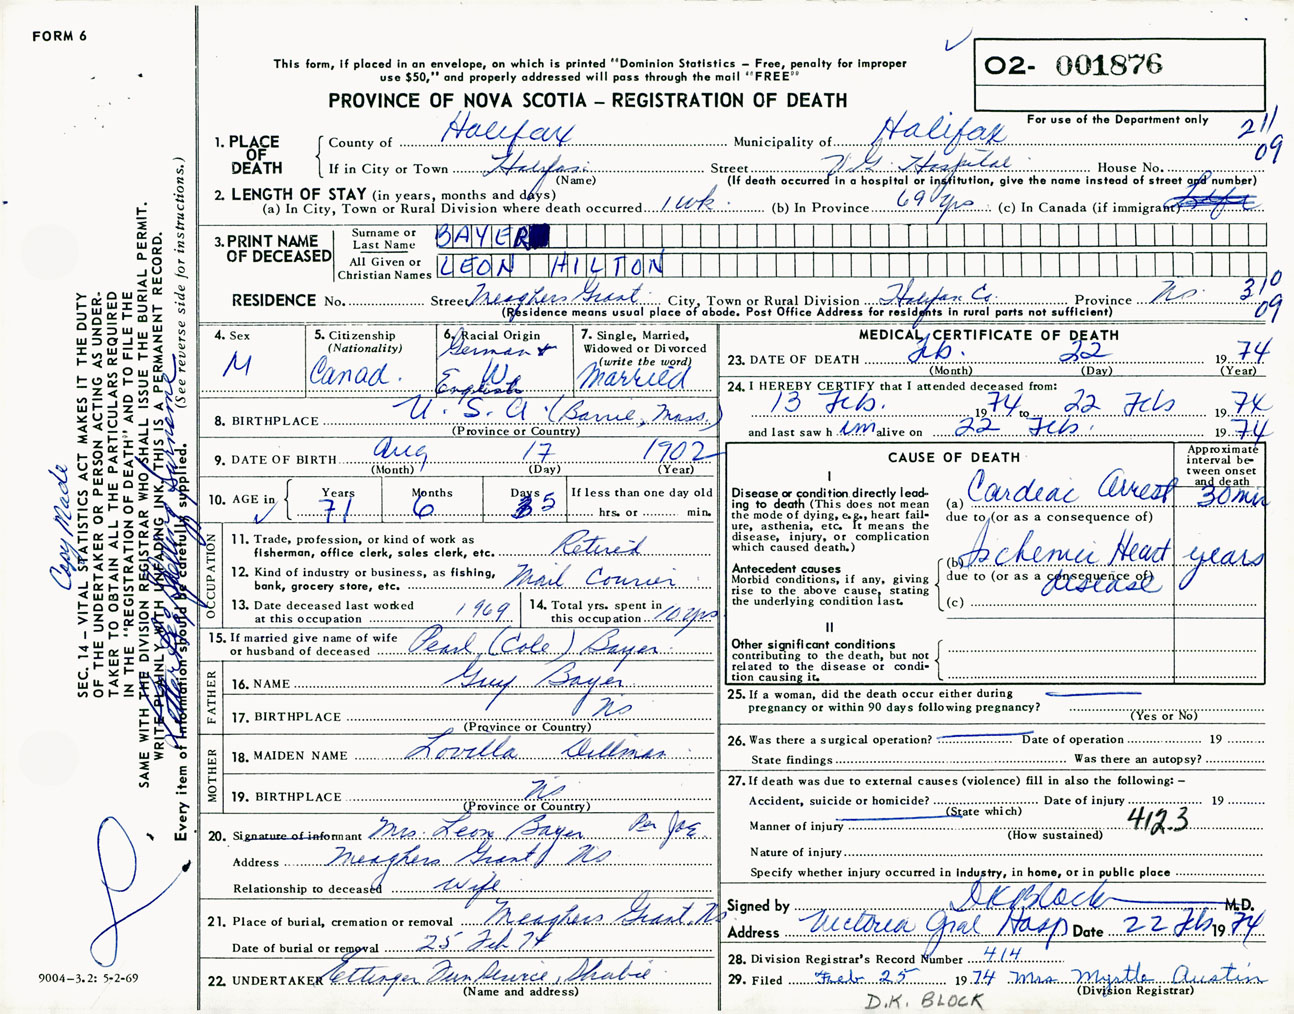 FORM 6
This form, if placed in an envelope, on which is printed "Dominion Statistics – Free, penalty for improper
use $50," and properly addressed will pass through the mail "FREE"
PROVINCE OF NOVA SCOTIA – REGISTRATION OF DEATH
O2- 001876
For use of the Department only
211
09
1. PLACE OF DEATH County of Halifax Municipality of Halifax
If in City or Town Halifax Street V.G. Hospital House No.
(Name) (If death occurred in a hospital or institution, give the name instead of street and number)
2. LENGTH OF STAY (in years, months and days)
(a) In City, Town or Rural Division where death occurred 1 wk. (b) In Province 69 yrs (c) In Canada (if immigrant) Life
3. PRINT NAME OF DECEASED
Surname or Last Name BAYER
All Given or Christian Names LEON HILTON
RESIDENCE No. Street Meaghers Grant City, Town or Rural Division Halifax Co. Province NS
(Residence means usual place of abode. Post Office Address for residents in rural parts not sufficient)
310
09
4. Sex M
5. Citizenship (Nationality) Canad.
6. Racial Origin German + English W
7. Single, Married, Widowed or Divorced (write the word) Married
8. BIRTHPLACE U.S.A. (Barrie, Mass.)
(Province or Country)
9. DATE OF BIRTH Aug 17 1902
(Month) (Day) (Year)
10. AGE in Years 71 Months 6 Days 5 If less than one day old
hrs. or min.
OCCUPATION
11. Trade, profession, or kind of work as fisherman, office clerk, sales clerk, etc. Retired
12. Kind of industry or business, as fishing, bank, grocery store, etc. Mail Courier
13. Date deceased last worked at this occupation 1969
14. Total yrs. spent in this occupation 10 yrs
15. If married give name of wife or husband of deceased Pearl (Cole) Bayer
FATHER
16. NAME Guy Bayer
17. BIRTHPLACE NS
(Province or Country)
MOTHER
18. MAIDEN NAME Lovilla Dillman
19. BIRTHPLACE NS
(Province or Country)
20. Signature of informant Mrs. Leon Bayer Per JOE
Address Meaghers Grant NS
Relationship to deceased Wife
21. Place of burial, cremation or removal Meaghers Grant, NS
Date of burial or removal 25 Feb 74
22. UNDERTAKER Ettinger Fun Service, Shubie
(Name and address)
MEDICAL CERTIFICATE OF DEATH
23. DATE OF DEATH Feb. 22 1974
(Month) (Day) (Year)
24. I HEREBY CERTIFY that I attended deceased from:
13 Feb. 1974 to 22 Feb 1974
and last saw him alive on 22 Feb. 1974
CAUSE OF DEATH
Approximate interval between onset and death
I
Disease or condition directly leading to death (This does not mean the mode of dying, e.g., heart failure, asthenia, etc. It means the disease, injury, or complication which caused death.)
(a) Cardeac Arrest 30 min
due to (or as a consequence of)
Antecedent causes
Morbid conditions, if any, giving rise to the above cause, stating the underlying condition last.
(b) Ischemic Heart disease years
due to (or as a consequence of)
(c)
II
Other significant conditions
contributing to the death, but not related to the disease or condition causing it.
25. If a woman, did the death occur either during pregnancy or within 90 days following pregnancy?
(Yes or No)
26. Was there a surgical operation? Date of operation 19
State findings Was there an autopsy?
27. If death was due to external causes (violence) fill in also the following: –
Accident, suicide or homicide? Date of injury 19
(State which)
Manner of injury 412.3
(How sustained)
Nature of injury
Specify whether injury occurred in Industry, in home, or in public place
Signed by D K Block M.D.
Address Victoria Gnal Hosp Date 22 Feb 1974
28. Division Registrar's Record Number 414
29. Filed Feb 25 1974 Mrs Myrtle Austin
(Division Registrar)
D.K. BLOCK
Copy Made
SEC. 14 – VITAL STATISTICS ACT MAKES IT THE DUTY
OF THE UNDERTAKER OR PERSON ACTING AS UNDER-
TAKER TO OBTAIN ALL THE PARTICULARS REQUIRED
IN THE "REGISTRATION OF DEATH" AND TO FILE THE
SAME WITH THE DIVISION REGISTRAR WHO SHALL ISSUE THE BURIAL PERMIT.
WRITE PLAINLY WITH UNFADING INK, THIS IS A PERMANENT RECORD.
Every item of information should be carefully supplied. (See reverse side for instructions.)
9004-3.2: 5-2-69